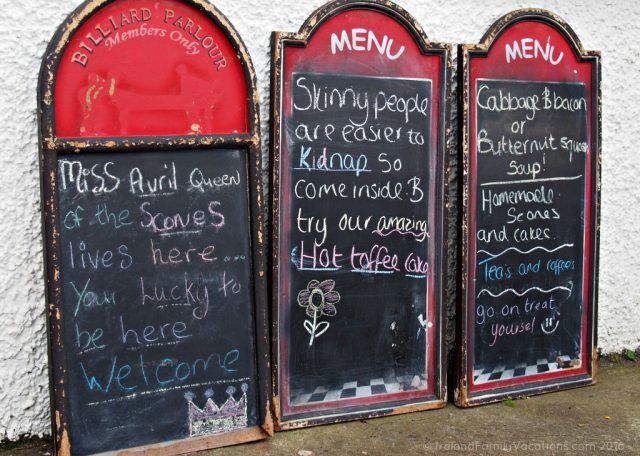 BILLIARD PARLOUR
Members Only
Miss Avril Queen
of the Scones
lives here...
Your Lucky to
be here
Welcome
MENU
Skinny people
are easier to
Kidnap so
come inside &
try our amazing
Hot toffee cake
MENU
Cabbage & bacon
or
Butternut squash
Soup!
Homemade
Scones
and cakes.
Tea's and coffee's
go on treat
yourself
©IrelandFamilyVacations.com 2016